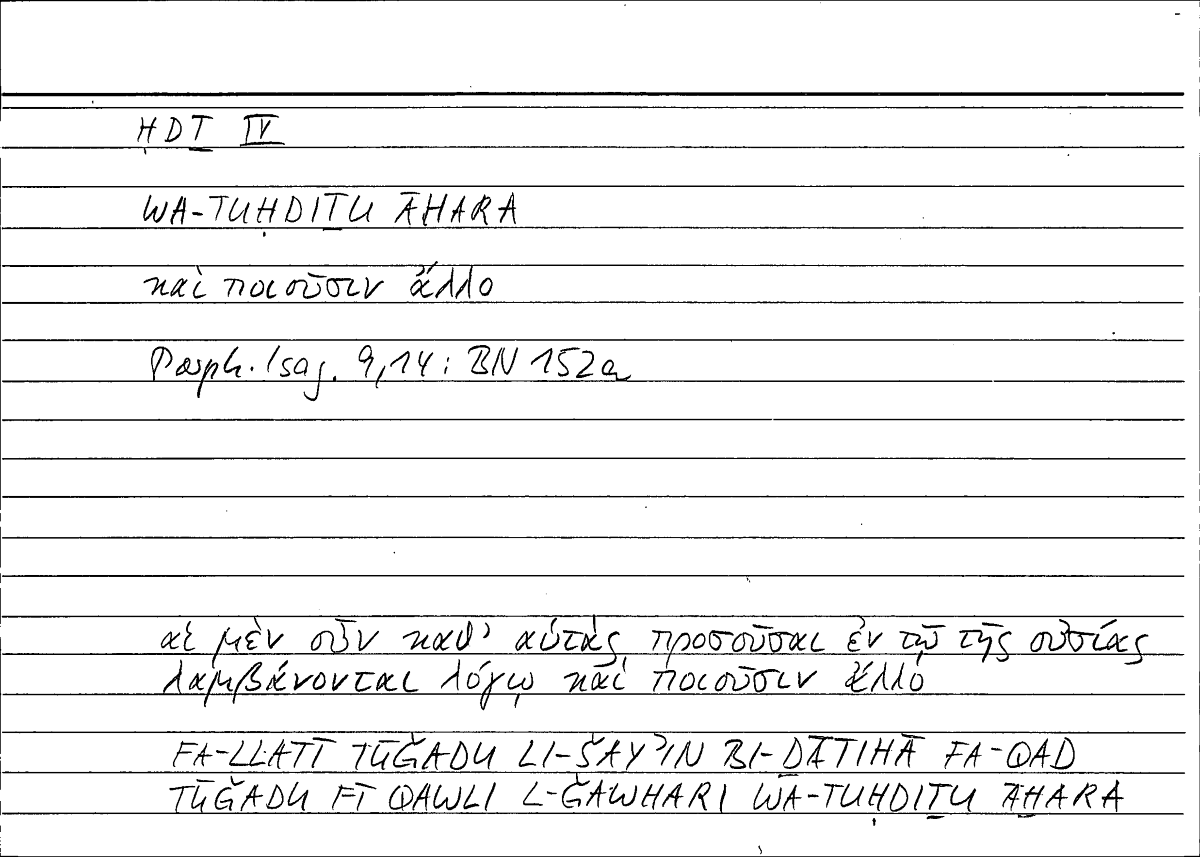 ḤDṮ IV
WA-TUḤDIṮU ĀḪARA
καὶ ποιοῦσιν ἄλλο
Porph. Isag. 9,14: BN 152a
αἱ μὲν οὖν καθ’ αὑτὰς προσοῦσαι ἐν τῷ τῆς οὐσίας
λαμβάνονται λόγῳ καὶ ποιοῦσιν ἄλλο
FA-LLATĪ TŪǦADU LI-ŠAYʾIN BI-ḎĀTIHĀ FA-QAD
TŪǦADU FĪ QAWLI L-ǦAWHARI WA-TUḤDIṮU ĀḪARA